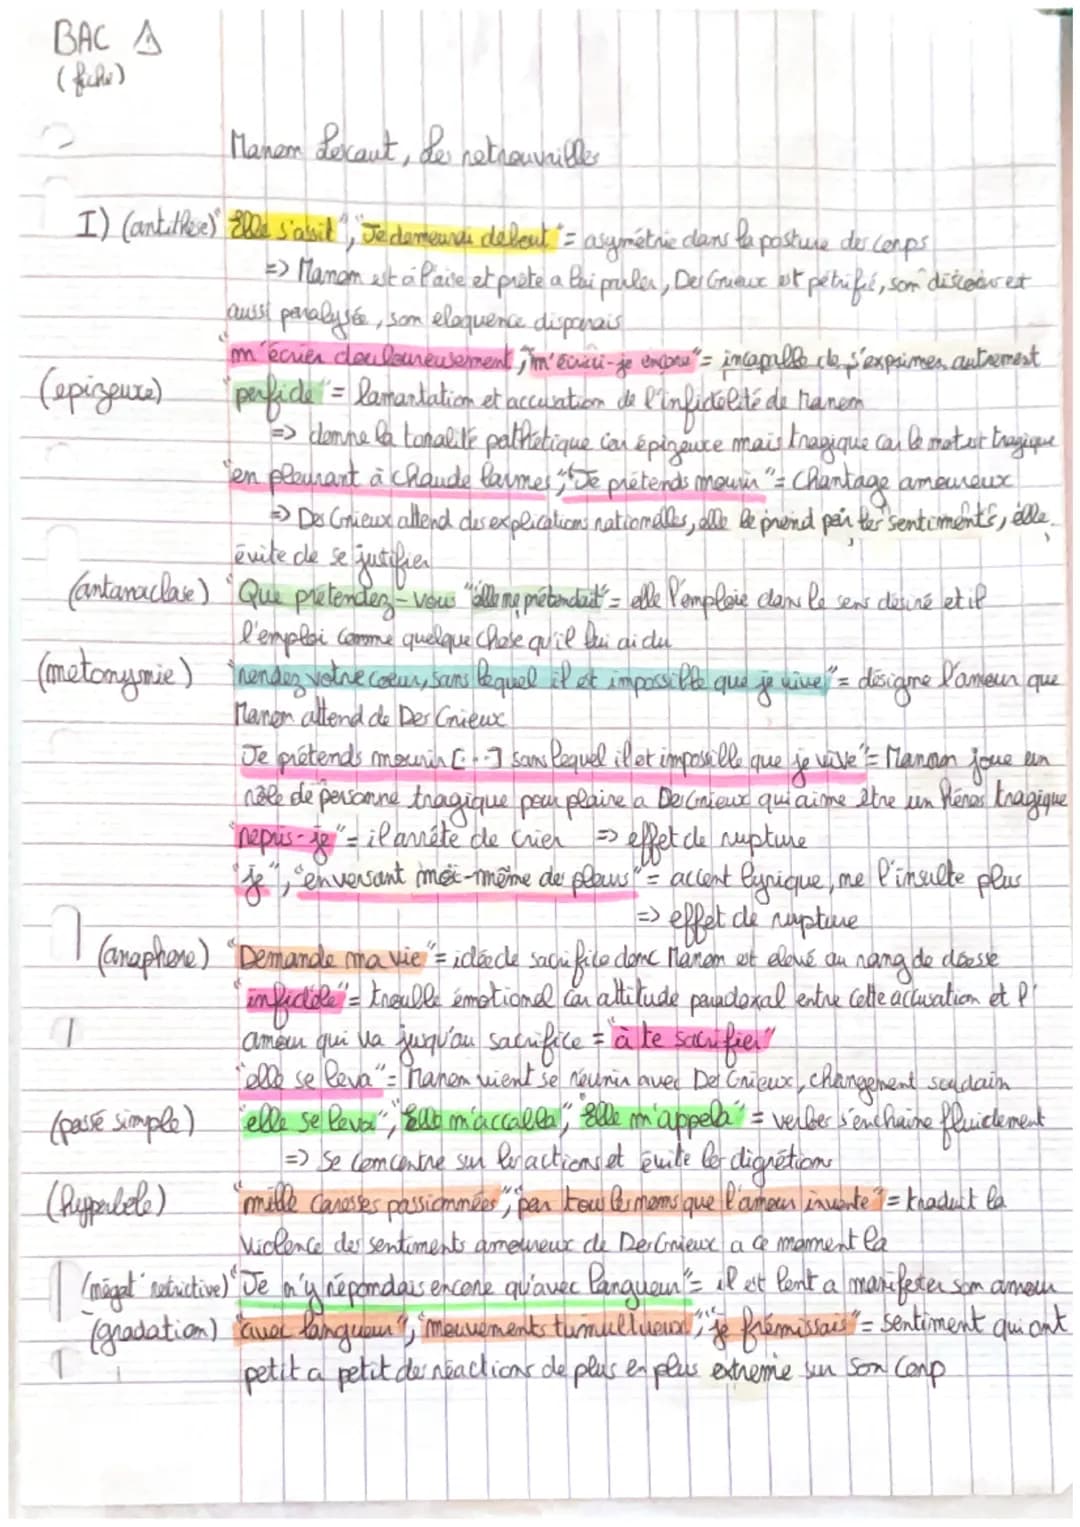 BAC ⚠
(fiche)
Manon Lescaut, les retrouvailles
I) (antithèse) "Elle s'assit", "Je demeurai debout" = asymétrie dans la posture des corps
=> Manon est à l'aise et prète a lui parler, Des Grieux est pétrifié, son discours est
aussi paralysée, son eloquence disparais
"m'écrier douloureusement", "m'écriai-je encore" = incapable de s'exprimer autrement
(epizeuxe) "perfide" = lamantation et accusation de l'infidélité de Manon
=> donne la tonalité pathétique car épizeuxe mais tragique car le mot est tragique
"en pleurant à chaude larmes", "Je prétends mourir" = Chantage amoureux
=> Des Grieux attend des explications rationnelles, elle le prend par les sentiments, elle
évite de se justifier
(antanaclase) "Que prétendez-vous" "elle me prétendait" = elle l'emploie dans le sens désiré et il
l'emploi comme quelque chose qu'il lui ai du
(métonymie) "rendez votre coeur, sans lequel il est impossible que je vive" = désigne l'amour que
Manon attend de Des Grieux
Je prétends mourir [...] sans lequel il est impossible que je vive" = Mannon joue un
rôle de personne tragique pour plaire a Des Grieux qui aime être un héros tragique
"repris-je" = il arrête de crier => effet de rupture
"je", "en versant moi-même de pleurs" = accent lyrique, ne l'insulte plus
=> effet de rupture
(anaphore) "Demande ma vie" = idée de sacrifice donc Manon est elevé au rang de déesse
"infidèle" = trouble émotionel car attitude paradoxal entre cette accusation et l'
amour qui va jusqu'au sacrifice = "à te sacrifier"
"elle se leva" = Manon vient se réunir avec Des Grieux, changement soudain
(passé simple) "elle se leva", "Elle m'accabla", "Elle m'appela" = verbes s'enchaine fluidement
=> Se concentre sur les actions et évite les digrétions
(hyperbole) "mille caresses passionnées", "par tous les noms que l'amour invente" = traduit la
violence des sentiments amoureux de Des Grieux a ce moment la
(négat° restrictive) "Je n'y répondais encore qu'avec langueur" = il est lent a manifester son amour
(gradation) "avec langueur", "mouvements tumultueux", "je frémissais" = sentiment qui ont
petit a petit des réactions de plus en plus extreme sur son corp